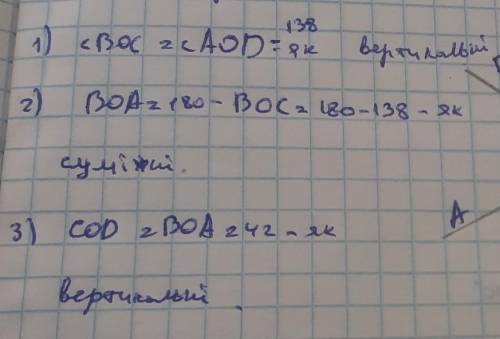 138
1) <BOC = <AOD = як вертикальні
2) BOA = 180 - BOC = 180 - 138 - як
суміжні.
3) COD = BOA = 42 - як
A
вертикальні.